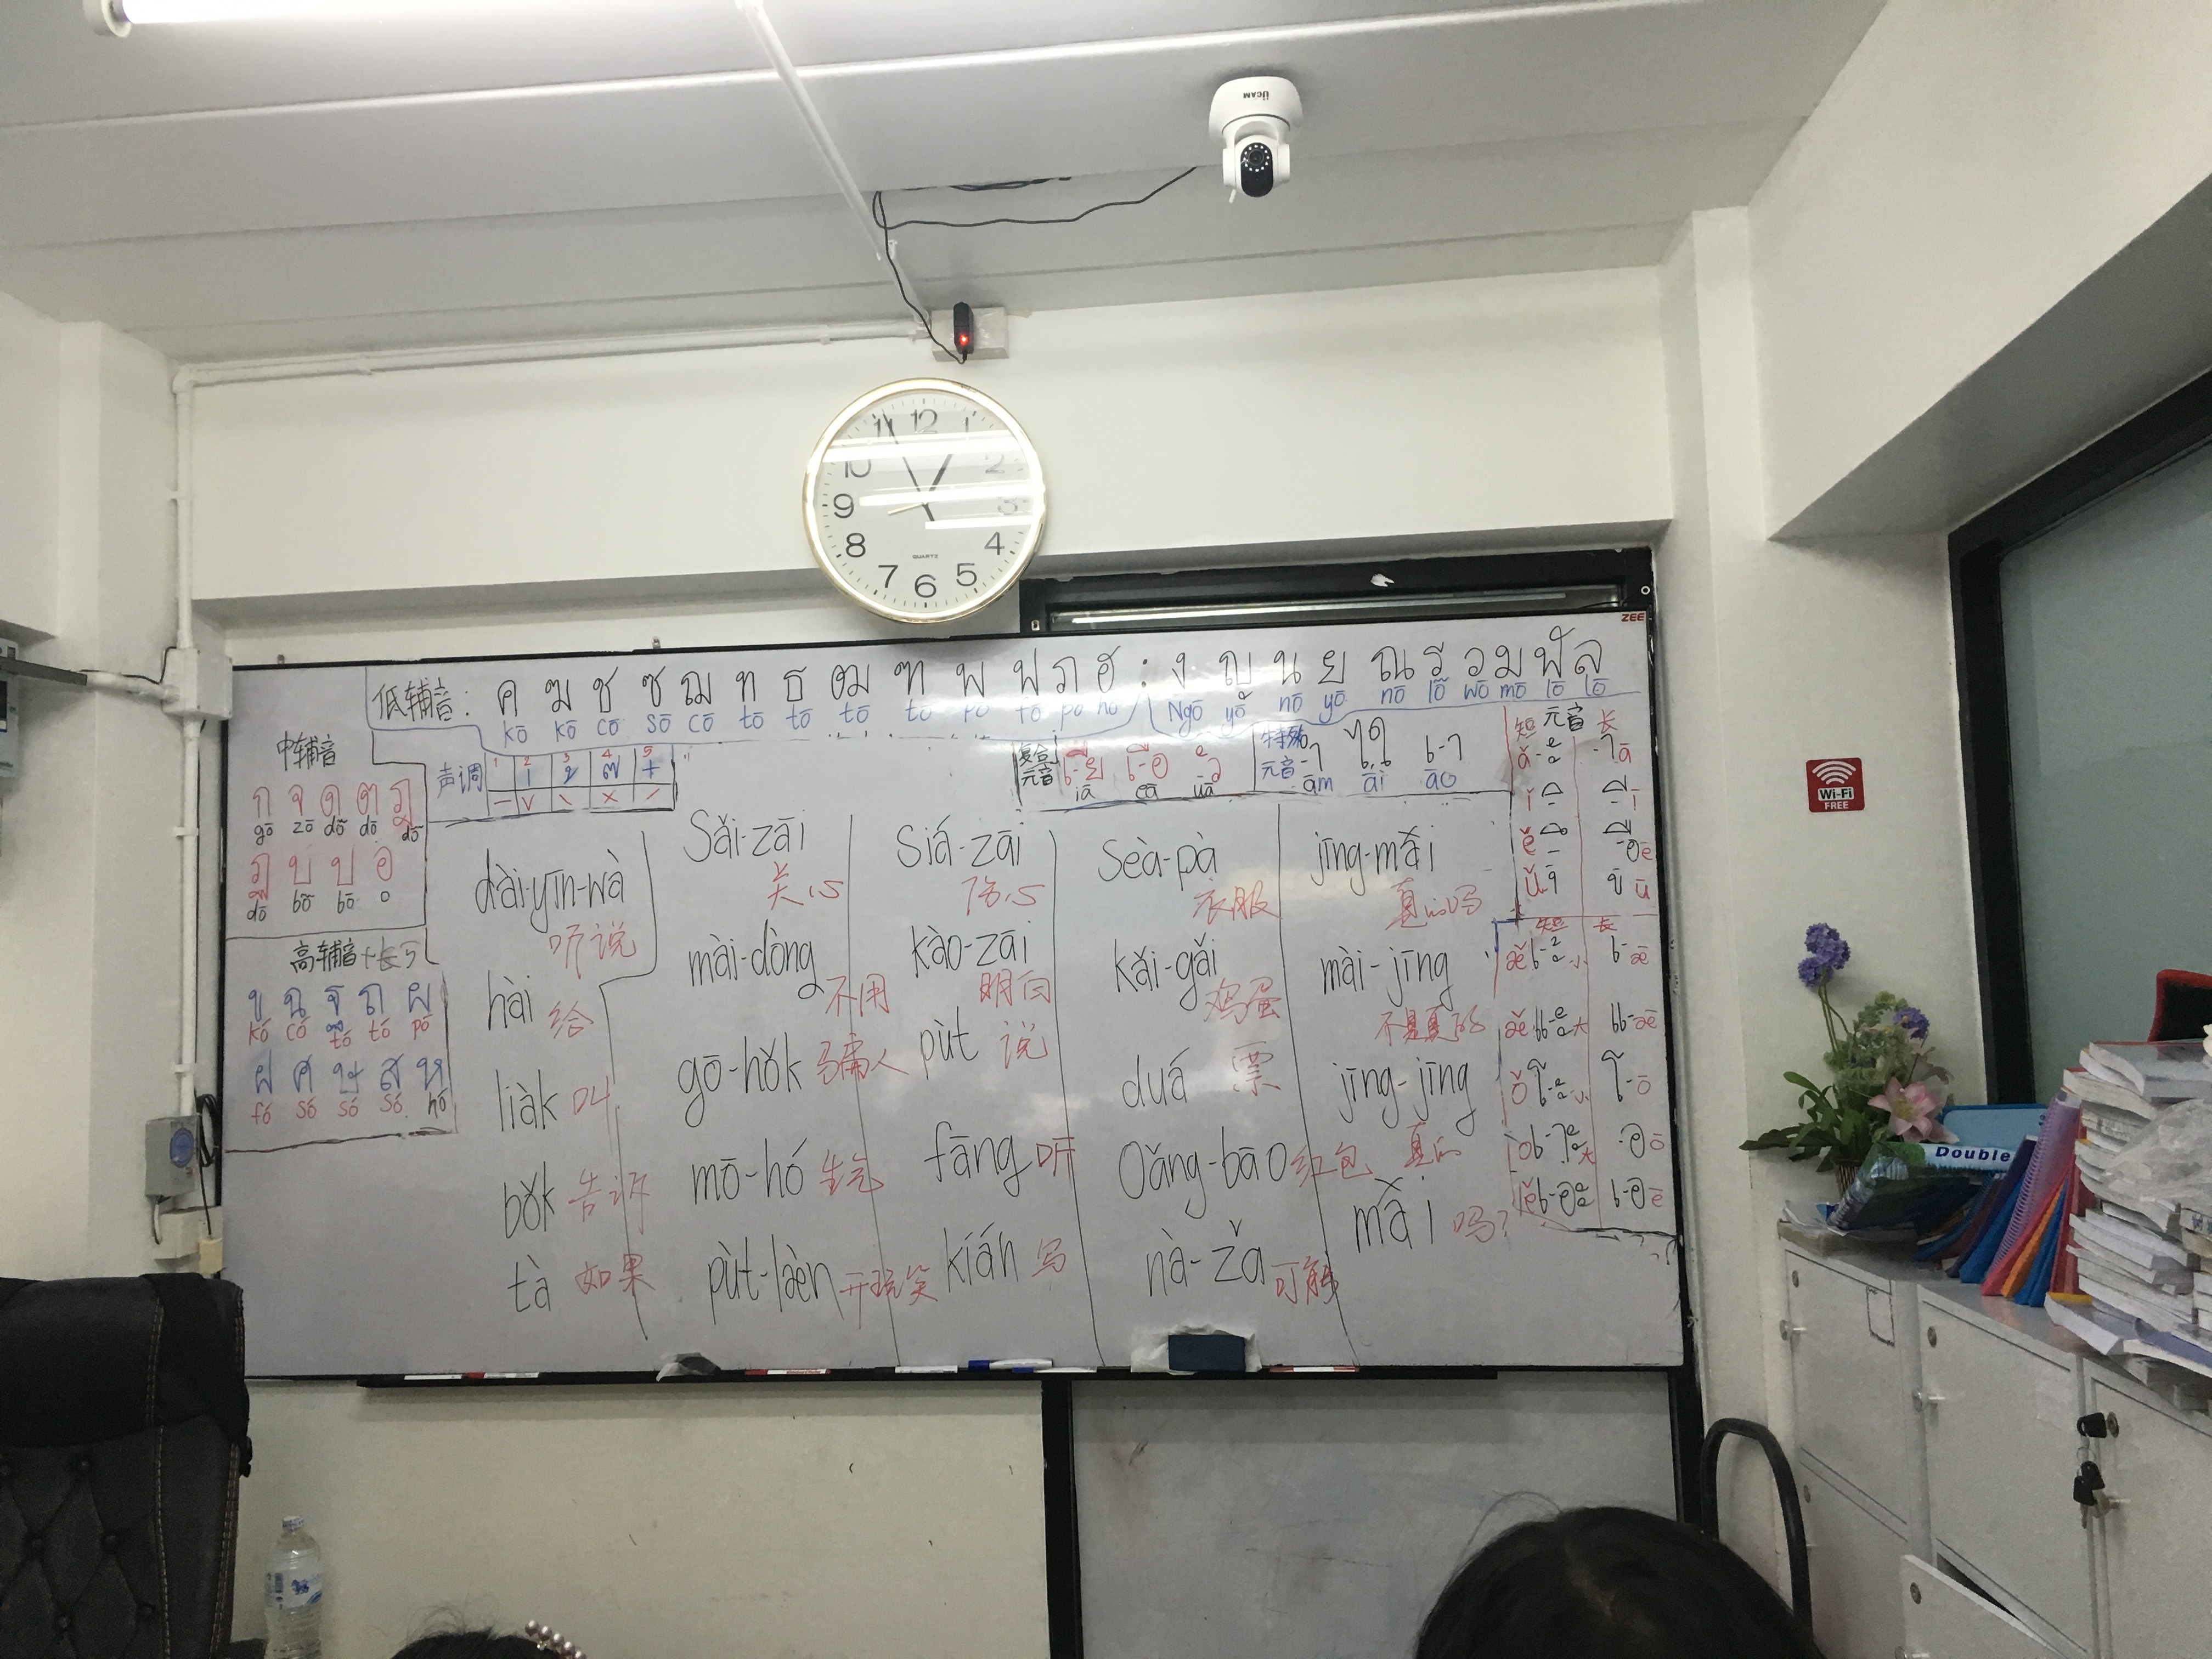 ÜCAM
11 12 1
10 2
9 3
8 4
7 6 5
QUARTZ
ZEE
低辅音: ค ฆ ช ซ ฌ ท ธ ฒ ฑ พ ฟ ภ ฮ : ง ญ น ย ณ ร ว ม ฬ ล
kō kō cō sō cō tō tō tō tō pō fō pō hō Ngō yō nō yō nō lō wō mō lō lō
中辅音
ก จ ด ต ฎ
gō zō dō dō dō
ฏ บ ป อ
dō bō bō o
高辅音+长ุ
ข ฉ ฐ ถ ผ
kó có tó tó pó
ฝ ศ ษ ส ห
fó só só só hó
声调
1 2 3 4 5
复合元音
iā ēā ūā
特殊元音
ām āi āo
短 元音 长
短 长
dài-yīn-wà
听说
hài 给
liàk 叫
bǒk 告诉
tà 如果
Sǎi-zāi
关心
mài-dòng
不用
gō-hǒk 骗人
mō-hó 生气
pùt-lèn 开玩笑
Siá-zāi
伤心
kào-zāi
明白
pùt 说
fāng 听
kián 写
Sèà-pà
衣服
kǎi-gǎi
鸡蛋
duá 票
Oǎng-bāo 红包
nà-zǎ 可能
jīng-mǎi
真的吗
mài-jīng
不是真的
jīng-jīng
真的
mǎi 吗?
Wi-Fi
FREE
Double